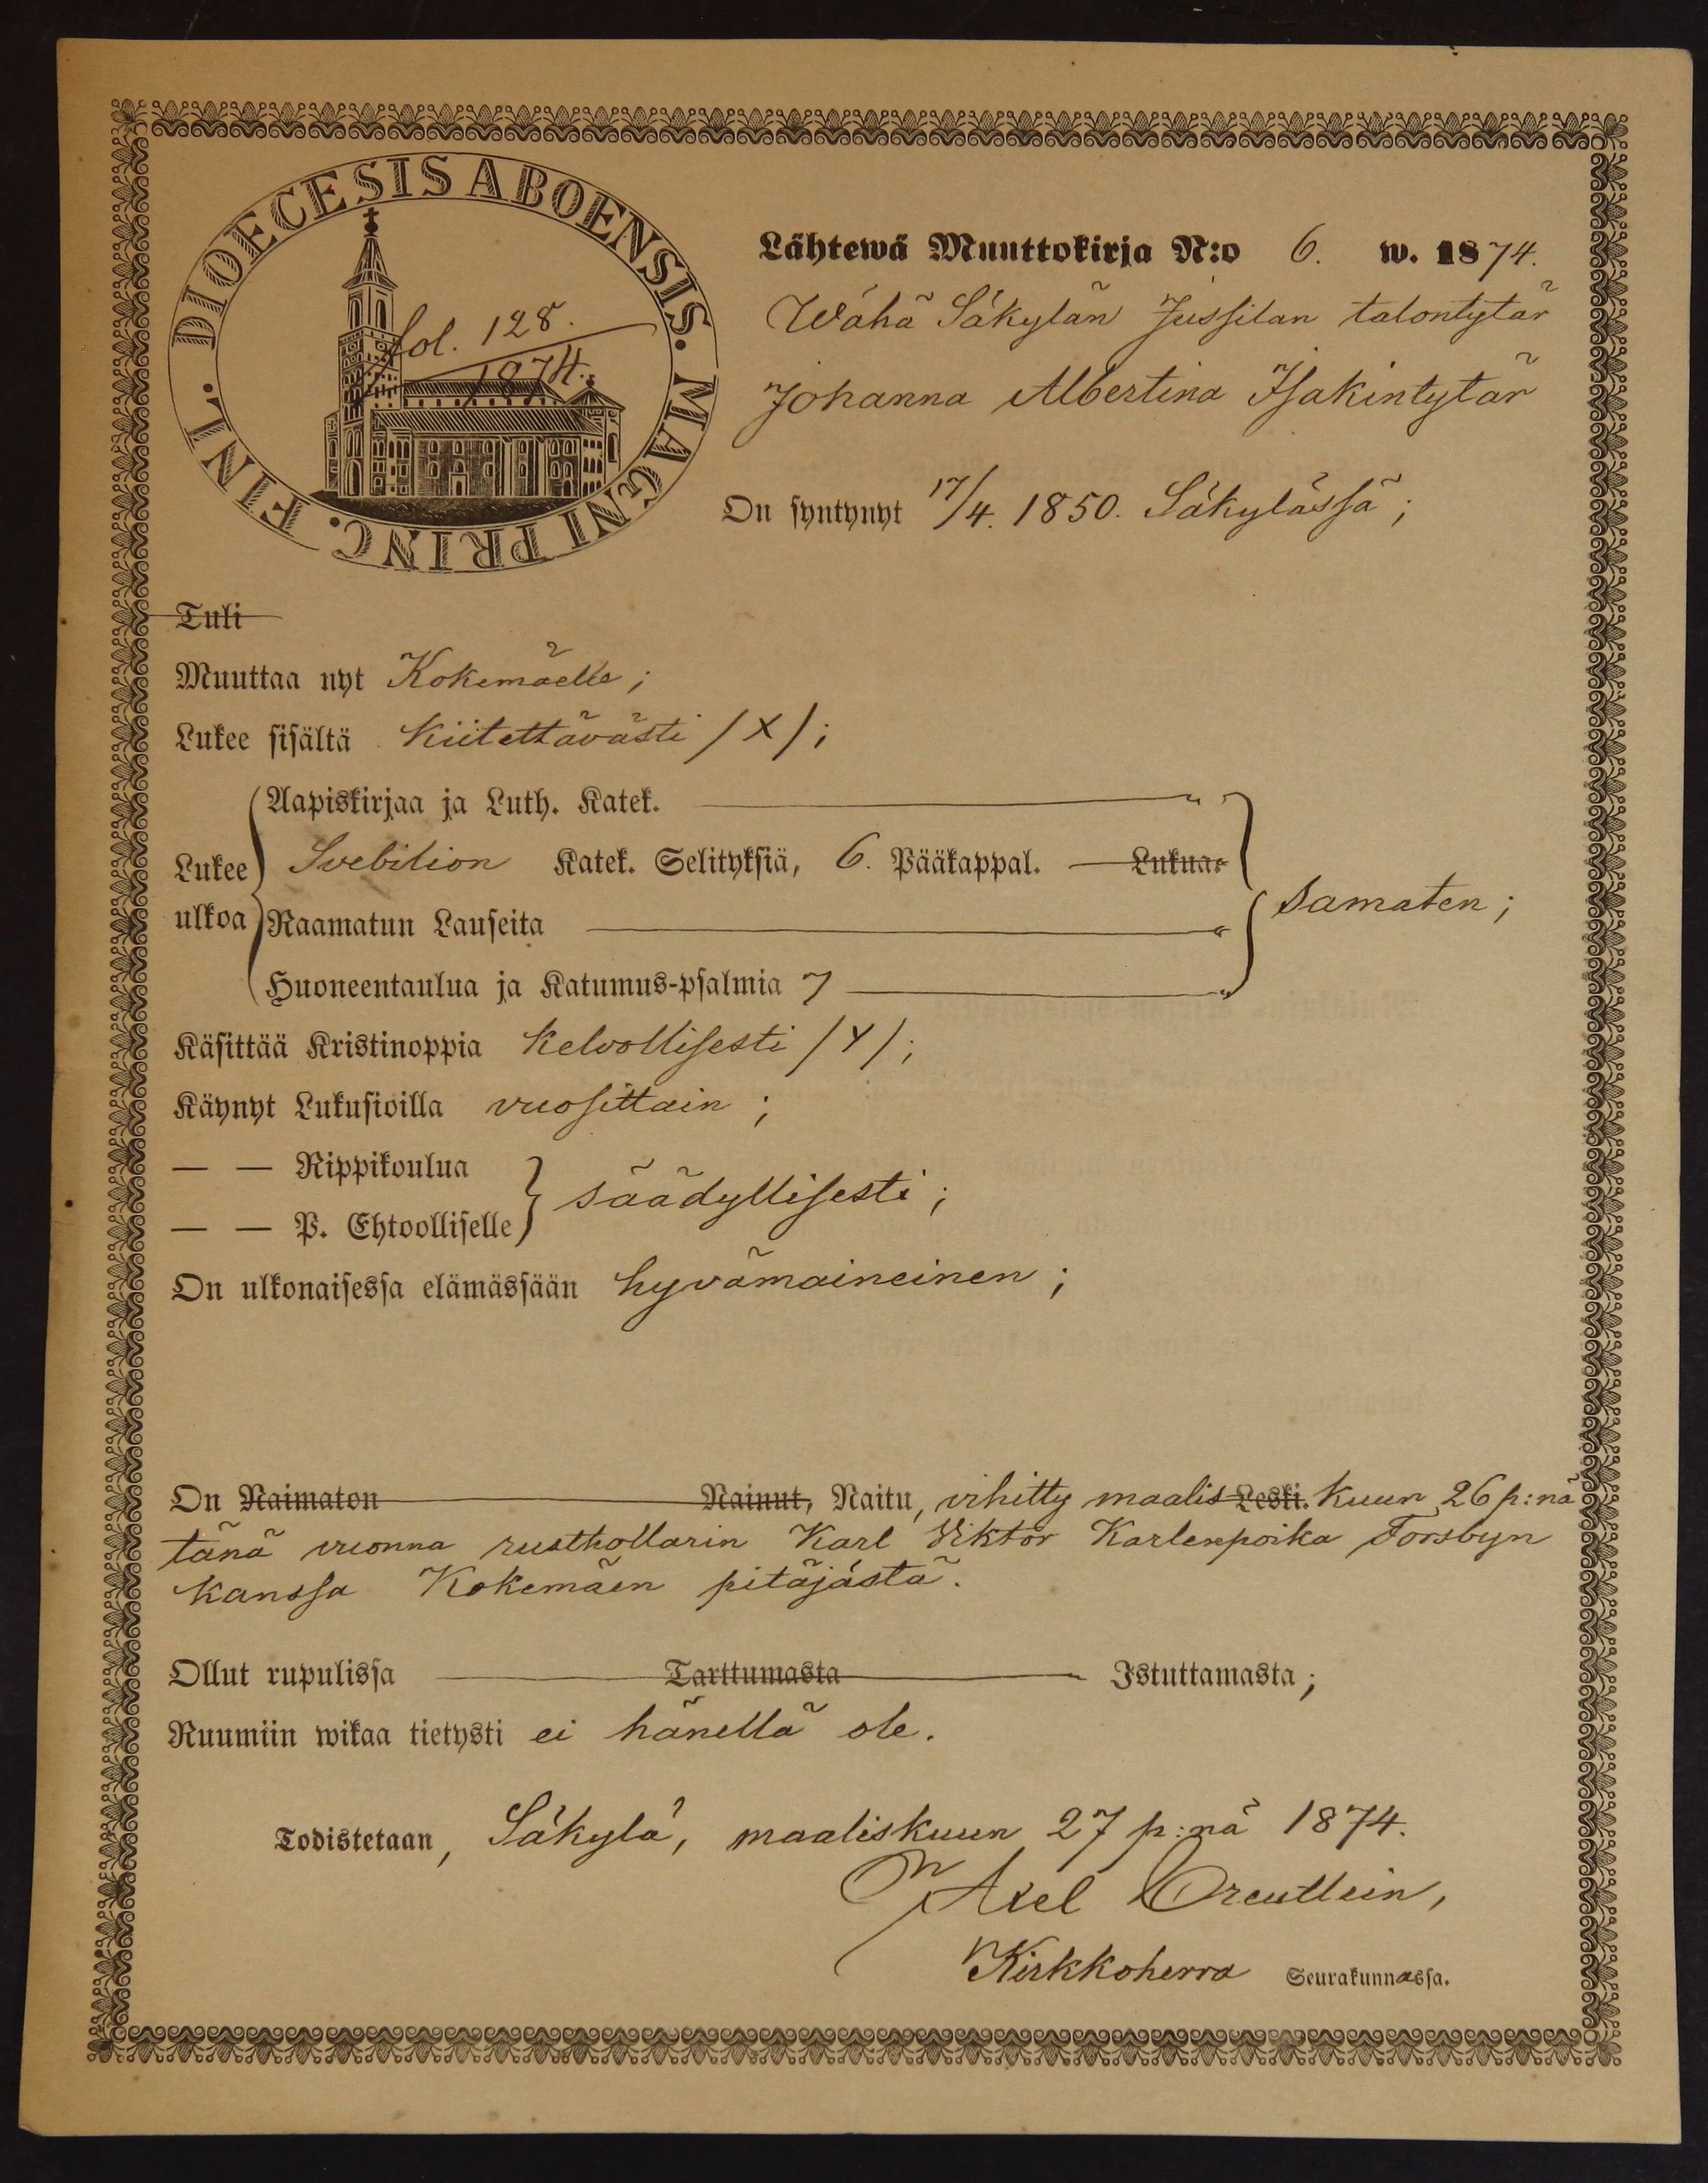 DIOECESIS ABOENSIS. MAGNI PRINC. FINL.
fol. 128.
1874.
Lähtewä Muuttokirja N:o 6. w. 1874.
Wähä Säkylän Jussilan talontytär
Johanna Albertina Isakintytär
On syntynyt 17/4. 1850. Säkylässä;
Tuli
Muuttaa nyt Kokemäelle;
Lukee sisältä kiitettävästi /X/;
Aapiskirjaa ja Luth. Katek. "
Lukee ulkoa
Svebilion Katek. Selityksiä, 6. Pääkappal. Lukuar
Raamatun Lauseita "
samaten;
Huoneentaulua ja Katumus-psalmia 7 "
Käsittää Kristinoppia kelvollisesti /Y/;
Käynyt Lukusioilla vuosittain;
— — Rippikoulua
— — P. Ehtoolliselle
säädyllisesti;
On ulkonaisessa elämässään hyvämaineinen;
On Naimaton Nainut, Naitu, vihitty maalis Leski. kuun 26 p:nä
tänä vuonna rusthollarin Karl Viktor Karlenpoika Forsbyn
kanssa Kokemäen pitäjästä.
Ollut rupulissa Tarttumasta Istuttamasta;
Ruumiin wikaa tietysti ei hänellä ole.
Todistetaan, Säkylä, maaliskuun 27 p:nä 1874.
Axel Oreutlein,
Kirkkoherra Seurakunnassa.